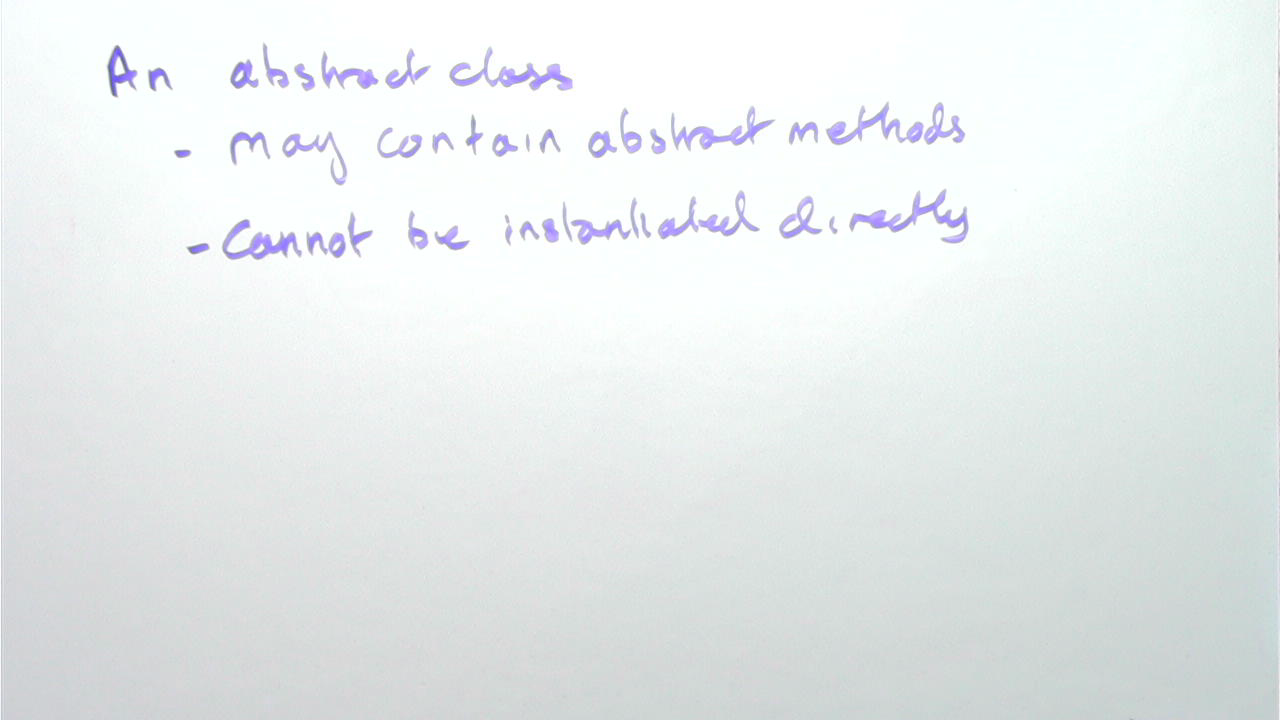 An abstract class
- may contain abstract methods
- Cannot be instantiated directly